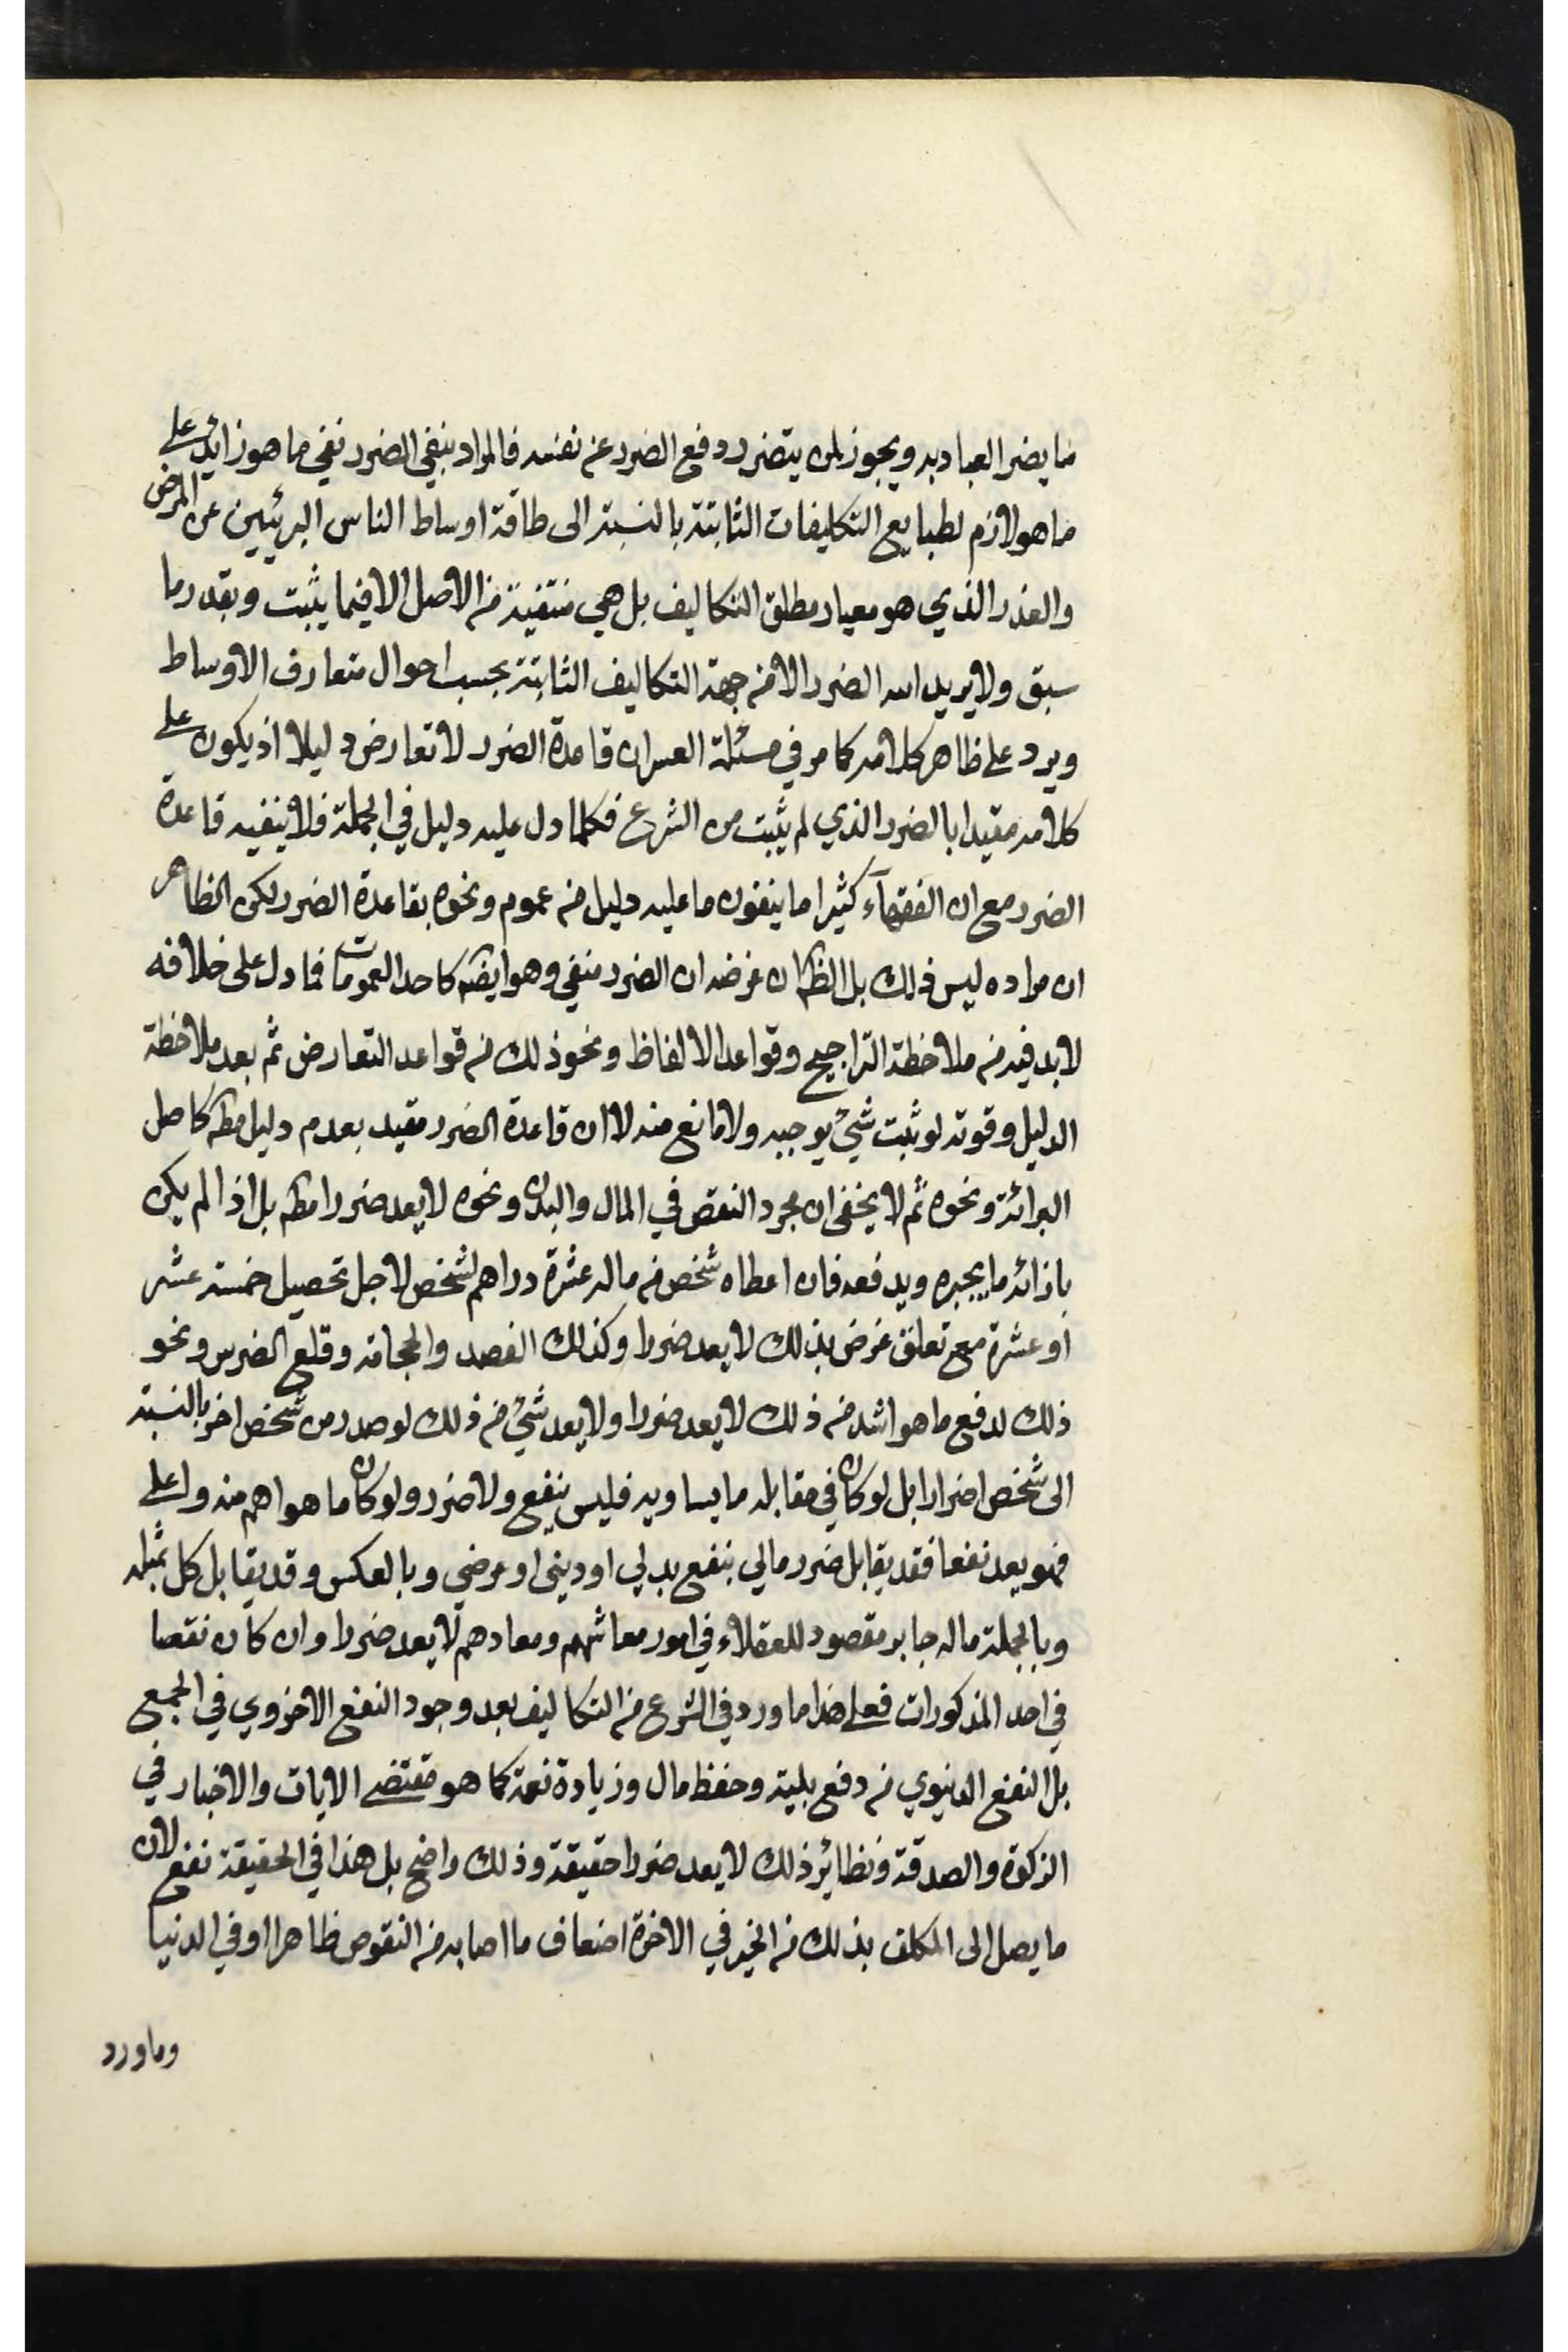 ما يضر العباد به ويجوز لمن يتضرر دفع الضرر عن نفسه فالمراد بنفي الضرر نفي ما هو زايد على
ما هو لازم لطبايع التكليفات الثابتة بالنسبة الى طاقة اوساط الناس البرئيين عن المرض
والعذر الذي هو معيار مطلق التكاليف بل هي منتفية من الاصل الا فيما يثبت وبقدر ما
سبق ولا يريد الله الضرر الا من جهة التكاليف الثابتة بحسب احوال متعارف الاوساط
ويرد على ظاهر كلامه كما مر في مسئلة العسر ان قاعدة الضرر لا تعارض دليلا اذ يكون على
كلامه مقيدا بالضرر الذي لم يثبت من الشرع فكلما دل عليه دليل في الجملة فلا ينفيه قاعدة
الضرر مع ان الفقهآء كثيرا ما ينفون ما عليه دليل من عموم ونحوه بقاعدة الضرر لكن الظاهر
ان مراده ليس ذلك بل الظ ان غرضه ان الضرر منفي وهو ايضه كاحد العمومات فما دل على خلافه
لابد فيه من ملاحظة التراجيح وقواعد الالفاظ ونحو ذلك من قواعد التعارض ثم بعد ملاحظة
الدليل وقوته لو ثبت شئ يوجبه ولا مانع منه لا ان قاعدة الضرر مقيد بعدم دليل مطه كاصل
البرائة ونحوه ثم لا يخفى ان مجرد النقص في المال والبدن ونحوه لا يعد ضررا مطه بل اذا لم يكن
بازائه ما يجبره ويدفعه فان اعطاه شخص من ماله عشرة دراهم لشخص لاجل تحصيل خمسة عشر
او عشرة مع تعلق غرض بذلك لا يعد ضررا وكذلك الفصد والحجامة وقلع الضرس ونحو
ذلك لدفع ما هو اشد من ذلك لا يعد ضررا ولا يعد شئ من ذلك لو صدر من شخص اخر بالنسبة
الى شخص اضرارا بل لو كان في مقابله ما يساويه فليس بنفع ولا ضرر ولو كان ما هو اهم منه واعلى
فهو يعد نفعا فقد يقابل ضرر مالي بنفع بدني او ديني او عرضي وبالعكس وقد يقابل كل بمثله
وبالجملة ماله جابر مقصود للعقلاء في امور معاشهم ومعادهم لا يعد ضررا وان كان نقصا
في احد المذكورات فعلى هذا ما ورد في الشرع من التكاليف بعد وجود النفع الاخروي في الجميع
بل النفع الدنيوي من دفع بلية وحفظ مال وزيادة نعمة كما هو مقتضى الايات والاخبار في
الزكوة والصدقة ونظاير ذلك لا يعد ضررا حقيقة وذلك واضح بل هذا في الحقيقة نفع لان
ما يصل الى المكلف بذلك من الخير في الاخرة اضعاف ما اصابه من النقوص ظاهرا او في الدنيا
وما ورد